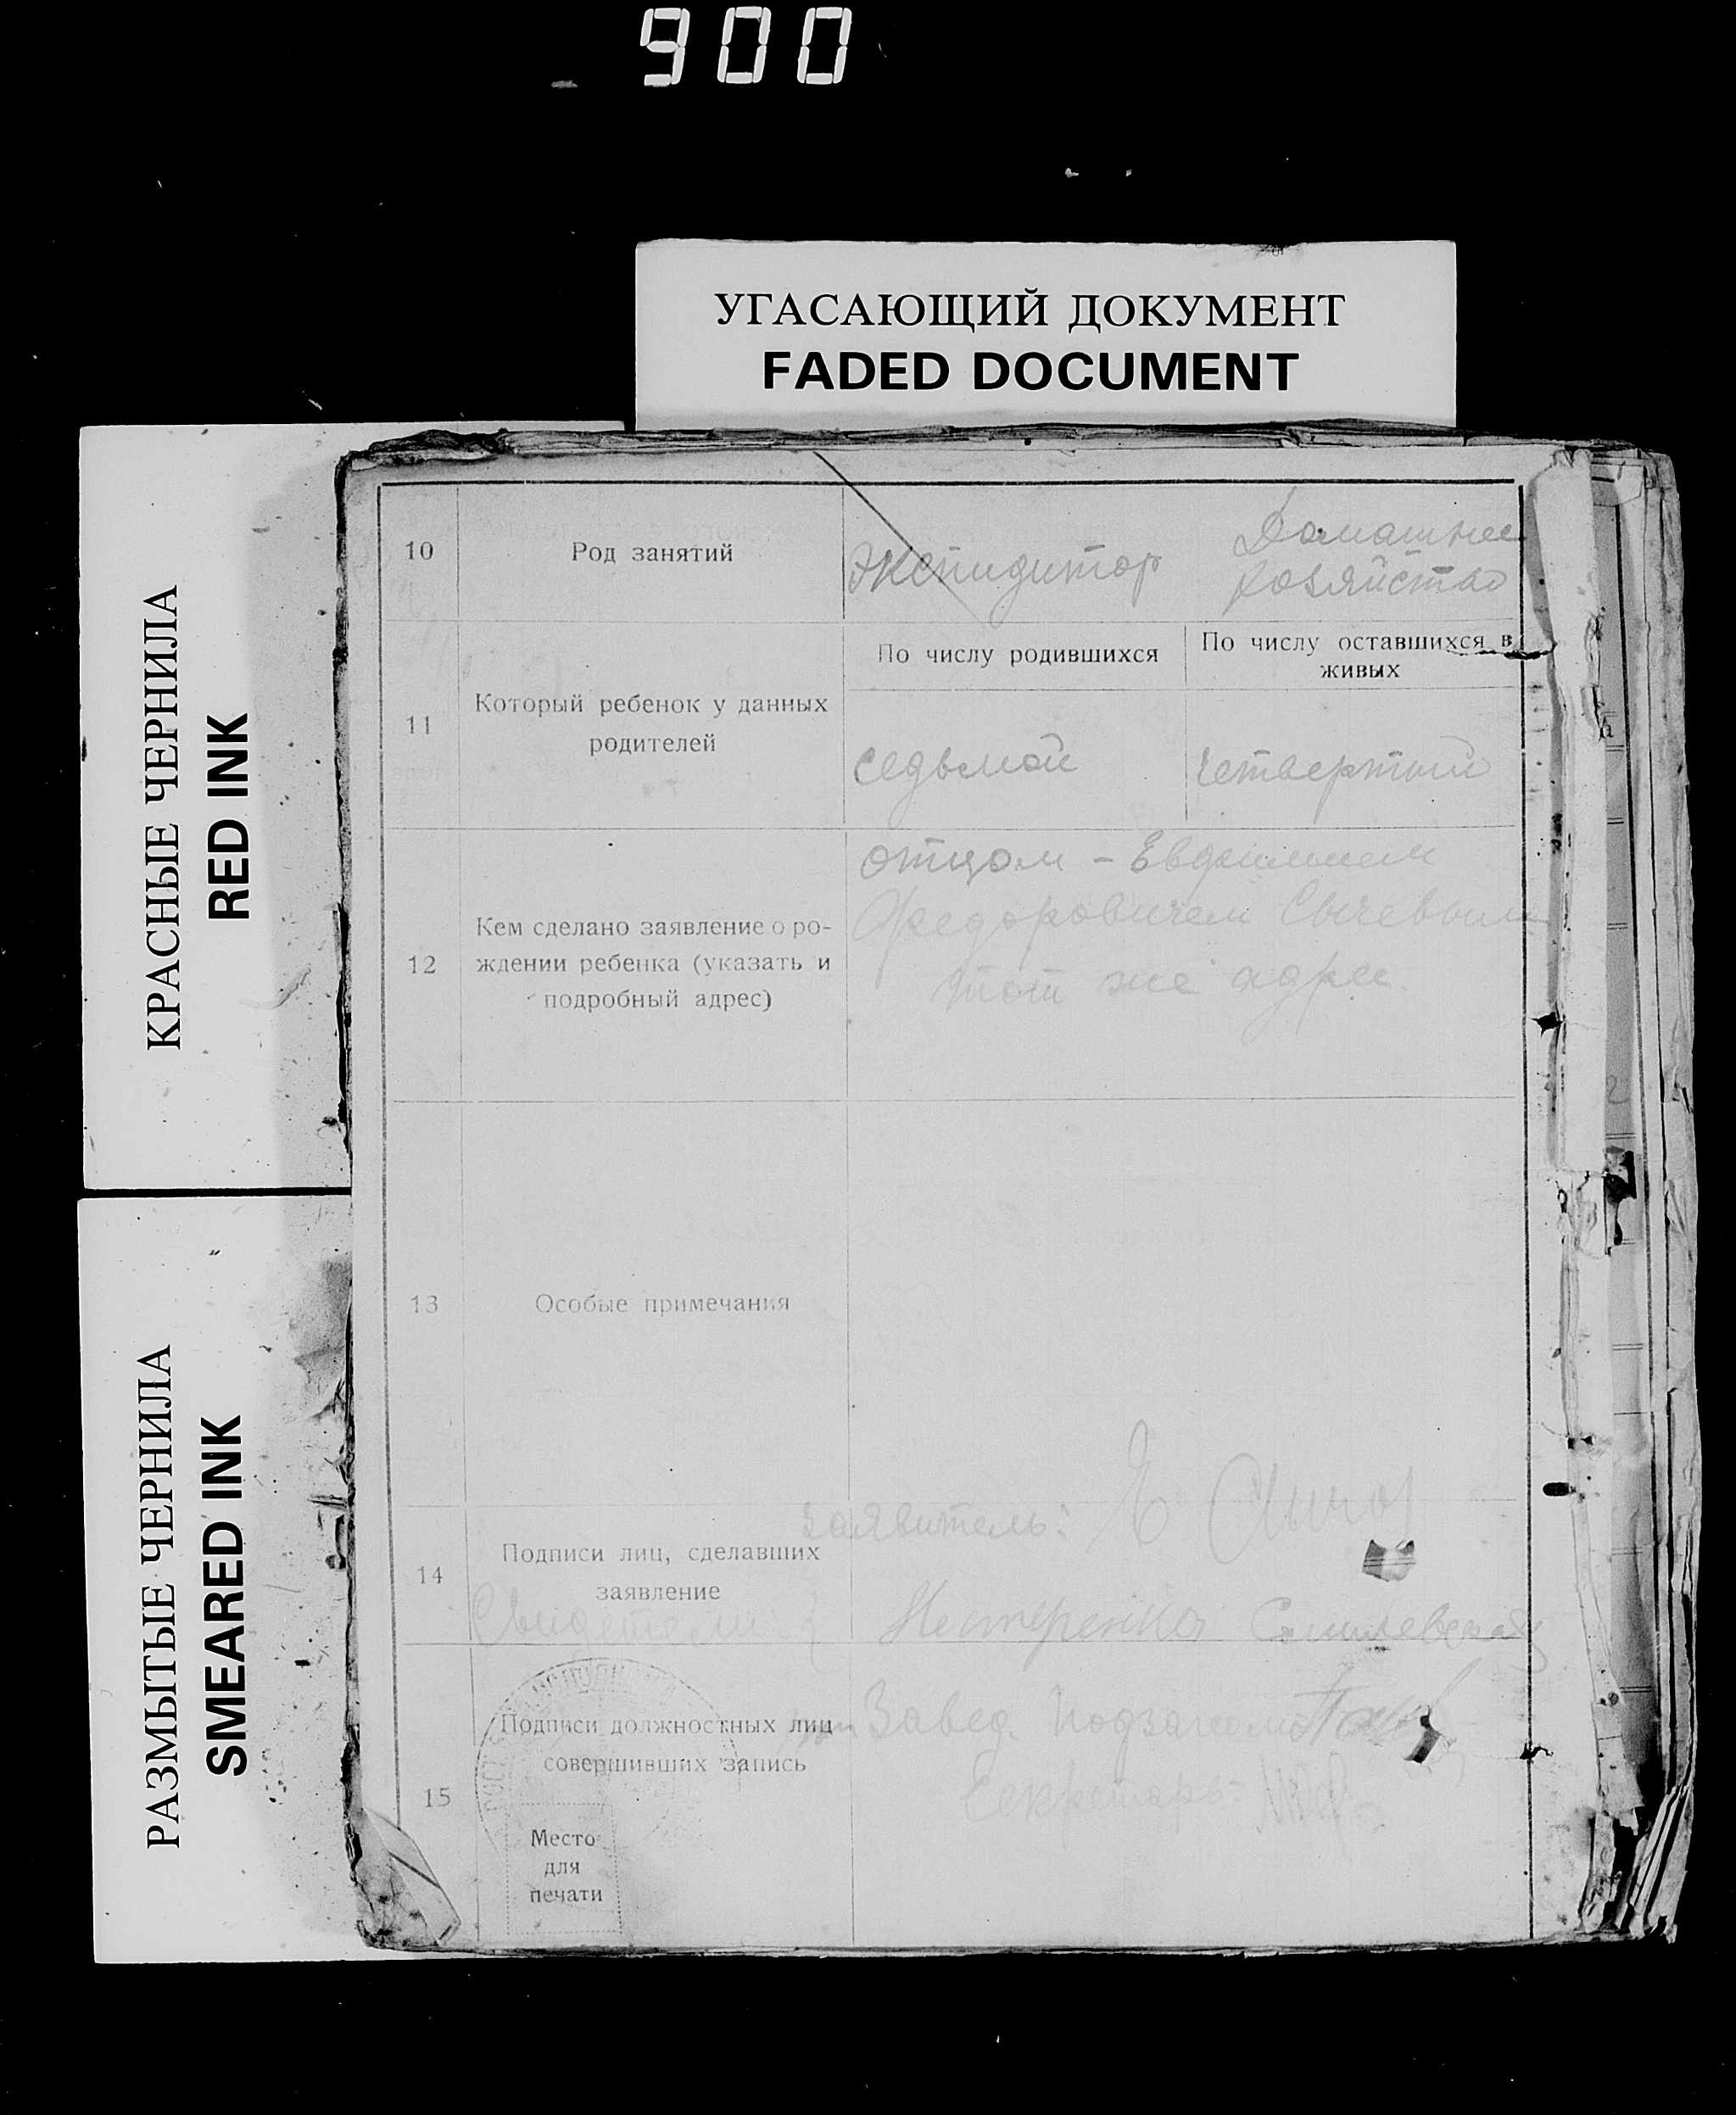 900
УГАСАЮЩИЙ ДОКУМЕНТ
FADED DOCUMENT
КРАСНЫЕ ЧЕРНИЛА
RED INK
РАЗМЫТЫЕ ЧЕРНИЛА
SMEARED INK
10 Род занятий Экспидитор Домашнее
хозяйство
11 Который ребенок у данных
родителей
По числу родившихся По числу оставшихся в
живых
седьмой четвертый
12 Кем сделано заявление о ро-
ждении ребенка (указать и
подробный адрес)
отцом - Евфимием
Федоровичем Сычевым
тот же адрес.
13 Особые примечания
14 Подписи лиц, сделавших
заявление
заявитель: Е
Свидетели Нестеренко
15 Подписи должностных лиц
совершивших запись
Завед.
Секретарь:
Место
для
печати